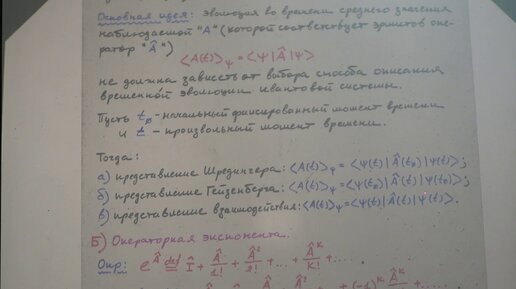 Основная идея: эволюция во времени среднего значения
наблюдаемой "A" (которой соответствует эрмитов опе-
ратор "Â")
⟨A(t)⟩_Ψ = ⟨Ψ|Â|Ψ⟩
не должна зависеть от выбора способа описания
временной эволюции квантовой системы.
Пусть t₀ - начальный фиксированный момент времени
и t - произвольный момент времени.
Тогда:
а) представление Шредингера: ⟨A(t)⟩_Ψ = ⟨Ψ(t)|Â(t₀)|Ψ(t)⟩;
б) представление Гейзенберга: ⟨A(t)⟩_Ψ = ⟨Ψ(t₀)|Â(t)|Ψ(t₀)⟩;
в) представление взаимодействия: ⟨A(t)⟩_Ψ = ⟨Ψ(t)|Â(t)|Ψ(t)⟩.
Б) Операторная экспонента.
Опр: e^Â def= Î + Â/1! + Â²/2! + ... + Â^k/k! + ....
+ ... + (-1)^k Â^k